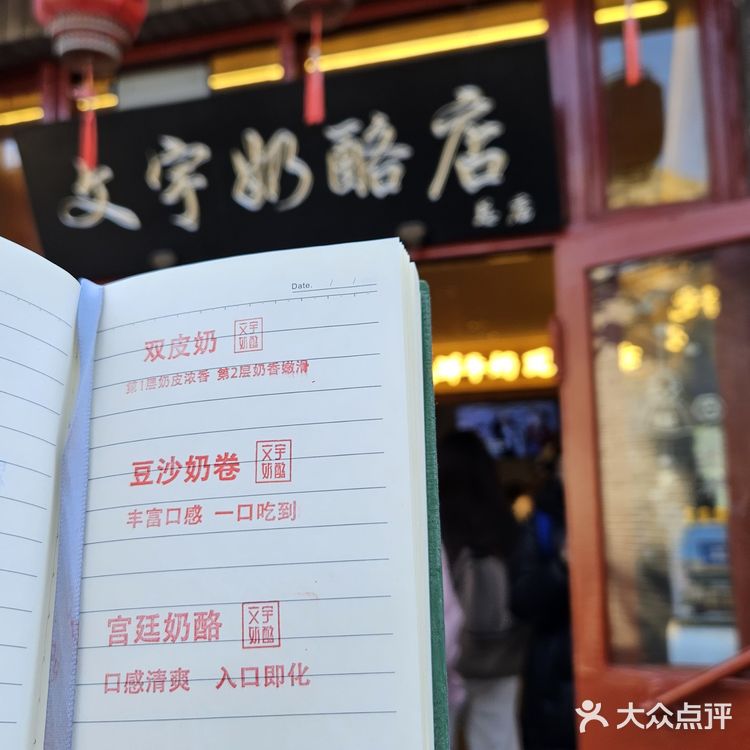 文宇奶酪店
总店
Date. / /
双皮奶 文宇奶酪
第1层奶皮浓香 第2层奶香嫩滑
豆沙奶卷 文宇奶酪
丰富口感 一口吃到
宫廷奶酪 文宇奶酪
口感清爽 入口即化
大众点评